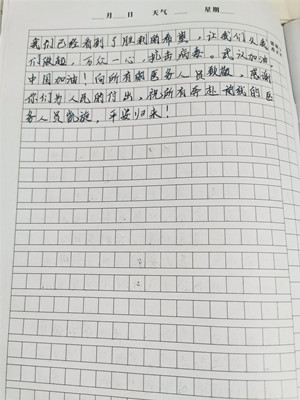 月 日 天气 星期
我们已经看到了胜利的希望，让我们众志
们做起，万众一心，抗击病毒。武汉加油，
中国加油！向所有的医务人员致敬，感谢
你们为人民的付出，祝所有奔赴前线的医
务人员凯旋，平安归来！